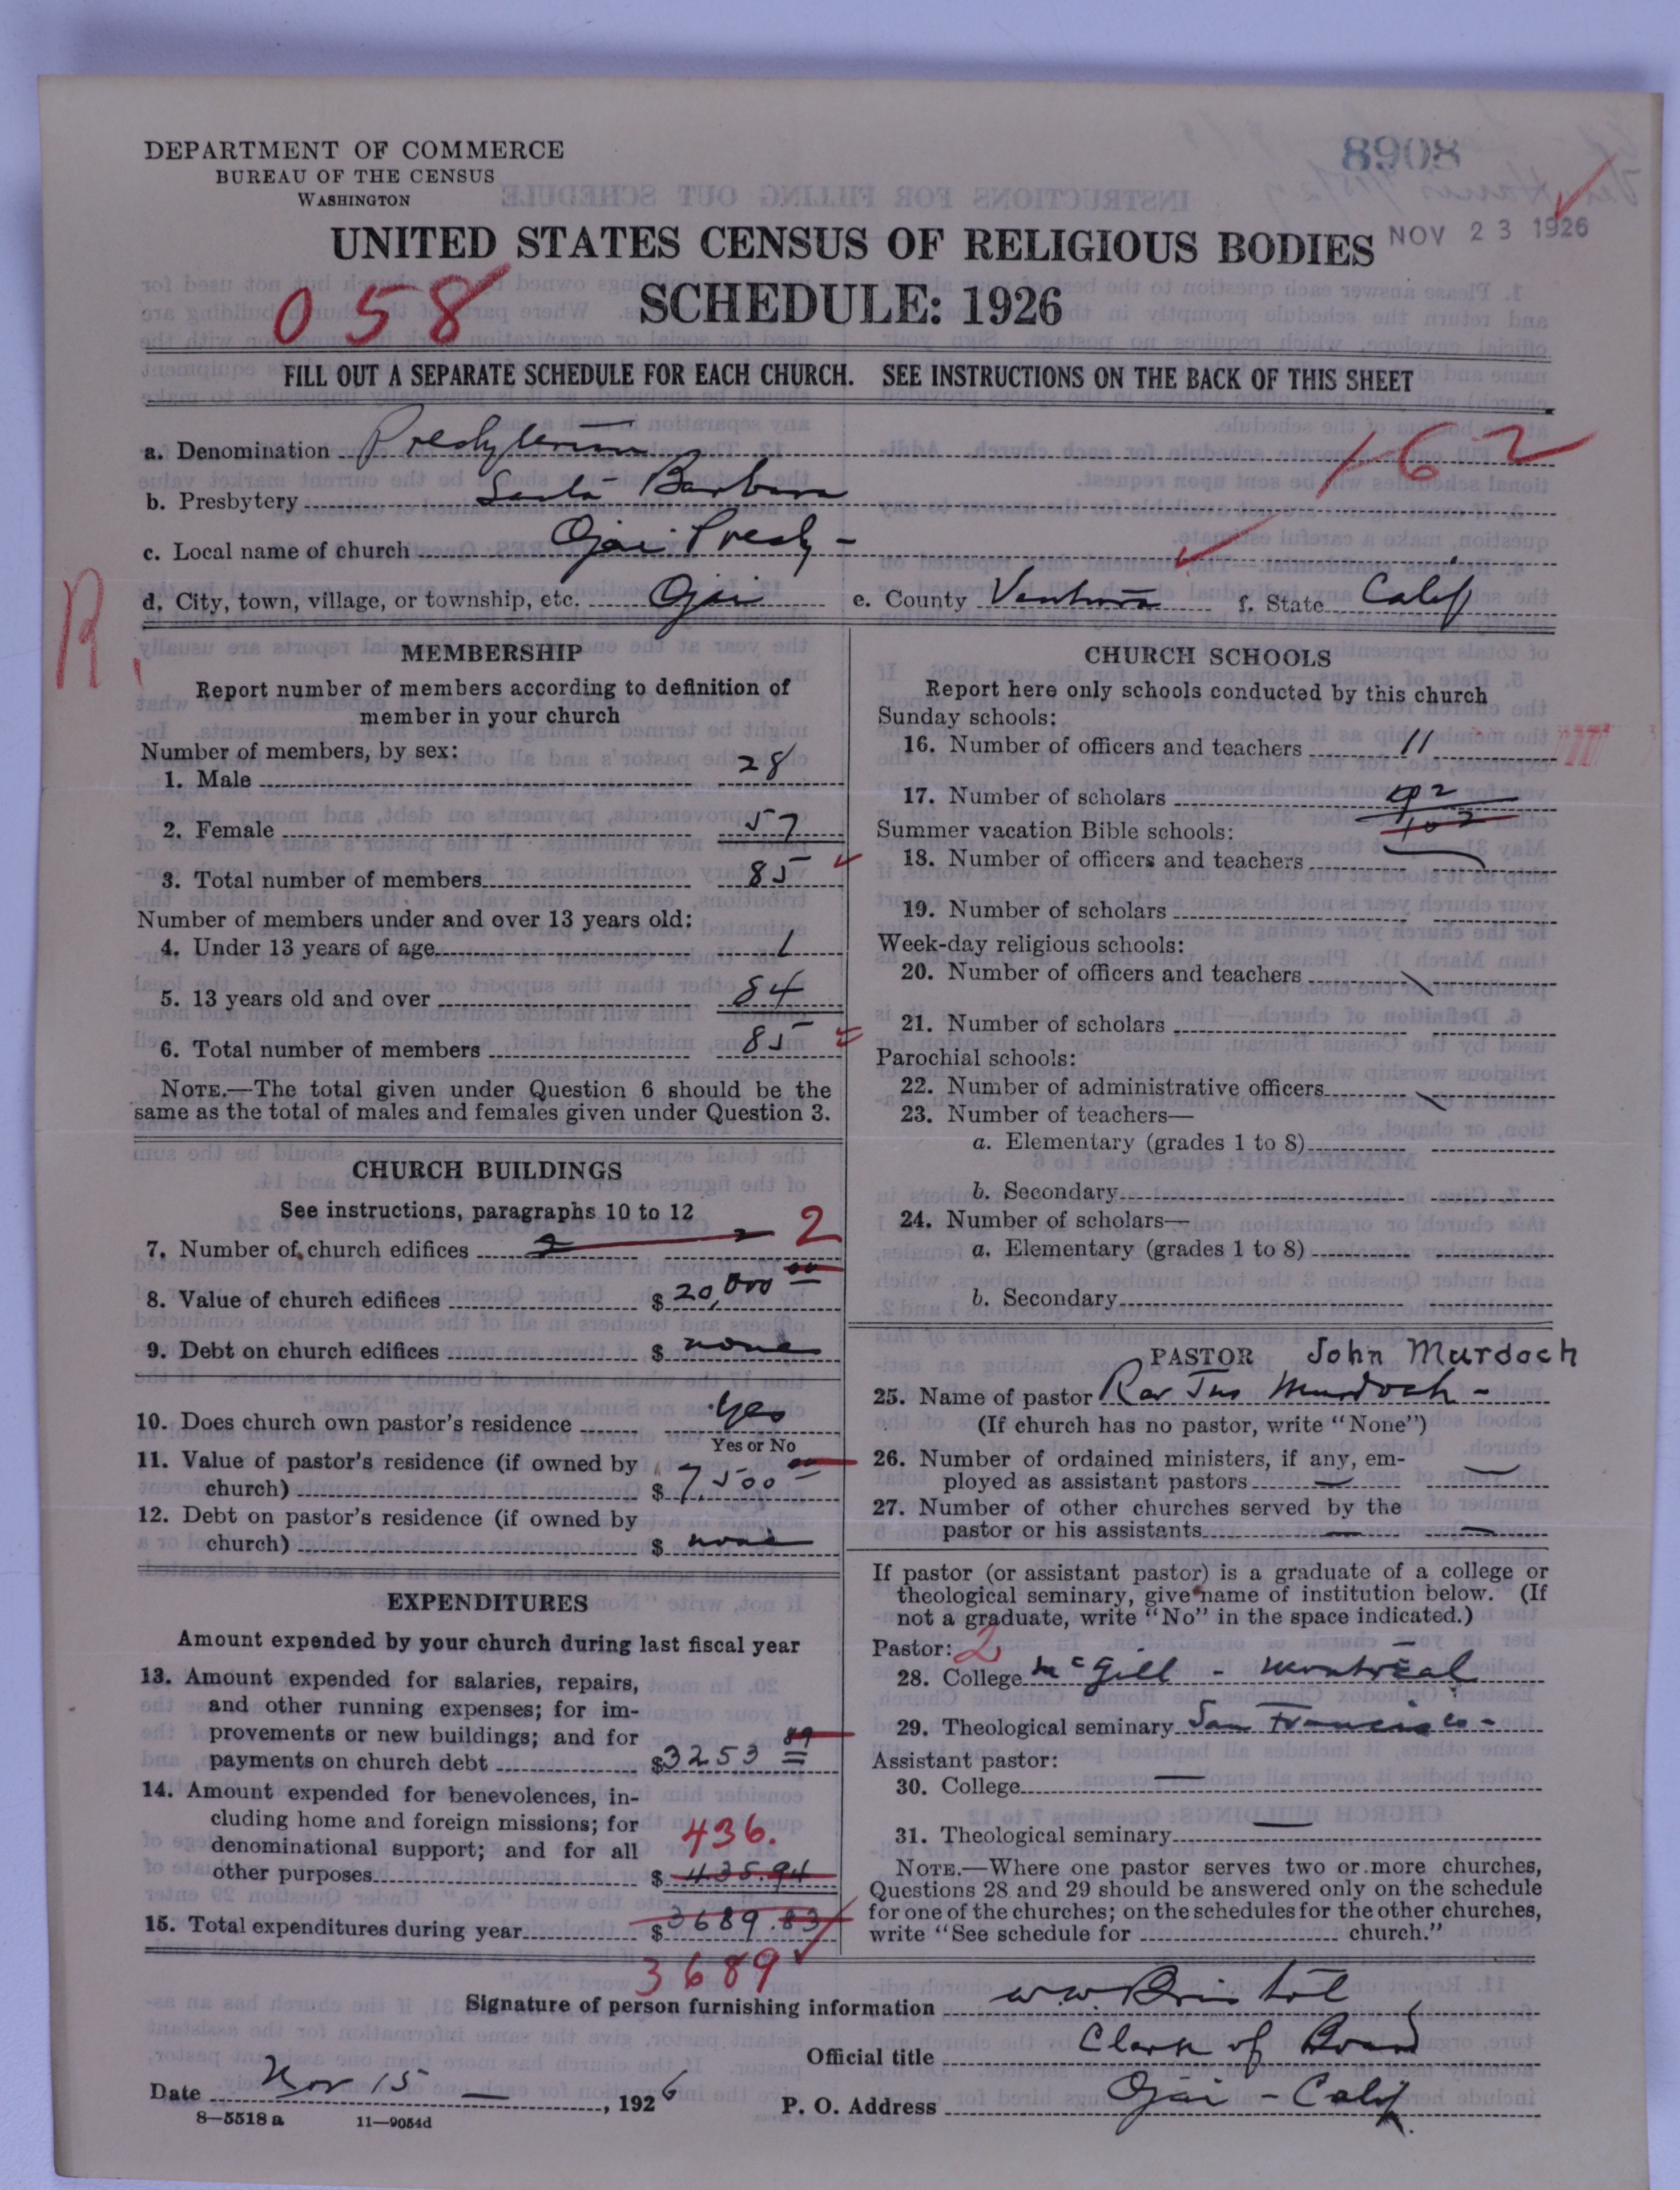 8908
DEPARTMENT OF COMMERCE
BUREAU OF THE CENSUS
WASHINGTON
NOV 23 1926
UNITED STATES CENSUS OF RELIGIOUS BODIES
058
SCHEDULE: 1926
FILL OUT A SEPARATE SCHEDULE FOR EACH CHURCH. SEE INSTRUCTIONS ON THE BACK OF THIS SHEET
a. Denomination Presbyterian
162
b. Presbytery Santa Barbara
c. Local name of church Ojai Presby -
d. City, town, village, or township, etc. Ojai e. County Ventura f. State Calif
R.
MEMBERSHIP
Report number of members according to definition of
member in your church
Number of members, by sex:
1. Male 28
2. Female 57
3. Total number of members 85
Number of members under and over 13 years old:
4. Under 13 years of age 1
5. 13 years old and over 84
6. Total number of members 85
NOTE.—The total given under Question 6 should be the
same as the total of males and females given under Question 3.
CHURCH BUILDINGS
See instructions, paragraphs 10 to 12
7. Number of church edifices 2 2
8. Value of church edifices $ 20,000 00
9. Debt on church edifices $ none
10. Does church own pastor's residence Yes
Yes or No
11. Value of pastor's residence (if owned by
church) $ 7,500 00
12. Debt on pastor's residence (if owned by
church) $ none
EXPENDITURES
Amount expended by your church during last fiscal year
13. Amount expended for salaries, repairs,
and other running expenses; for im-
provements or new buildings; and for
payments on church debt $3253 89
14. Amount expended for benevolences, in-
cluding home and foreign missions; for
denominational support; and for all
436.
other purposes $ 435.94
15. Total expenditures during year $ 3689.83
3689
CHURCH SCHOOLS
Report here only schools conducted by this church
Sunday schools:
16. Number of officers and teachers 11
17. Number of scholars
Summer vacation Bible schools:
18. Number of officers and teachers
19. Number of scholars
Week-day religious schools:
20. Number of officers and teachers
21. Number of scholars
Parochial schools:
22. Number of administrative officers
23. Number of teachers—
a. Elementary (grades 1 to 8)
b. Secondary
24. Number of scholars—
a. Elementary (grades 1 to 8)
b. Secondary
PASTOR John Murdoch
25. Name of pastor Rev Jno Murdoch -
(If church has no pastor, write "None")
26. Number of ordained ministers, if any, em-
ployed as assistant pastors —
27. Number of other churches served by the
pastor or his assistants — —
If pastor (or assistant pastor) is a graduate of a college or
theological seminary, give name of institution below. (If
not a graduate, write "No" in the space indicated.)
Pastor: 2
28. College McGill - Montreal
29. Theological seminary San Francisco -
Assistant pastor:
30. College —
31. Theological seminary —
NOTE.—Where one pastor serves two or more churches,
Questions 28 and 29 should be answered only on the schedule
for one of the churches; on the schedules for the other churches,
write "See schedule for church."
Signature of person furnishing information W.W. Bristol
Official title Clerk of Board
Date Nov 15 —, 1926 P. O. Address Ojai - Calif
8—5518 a 11—9054d